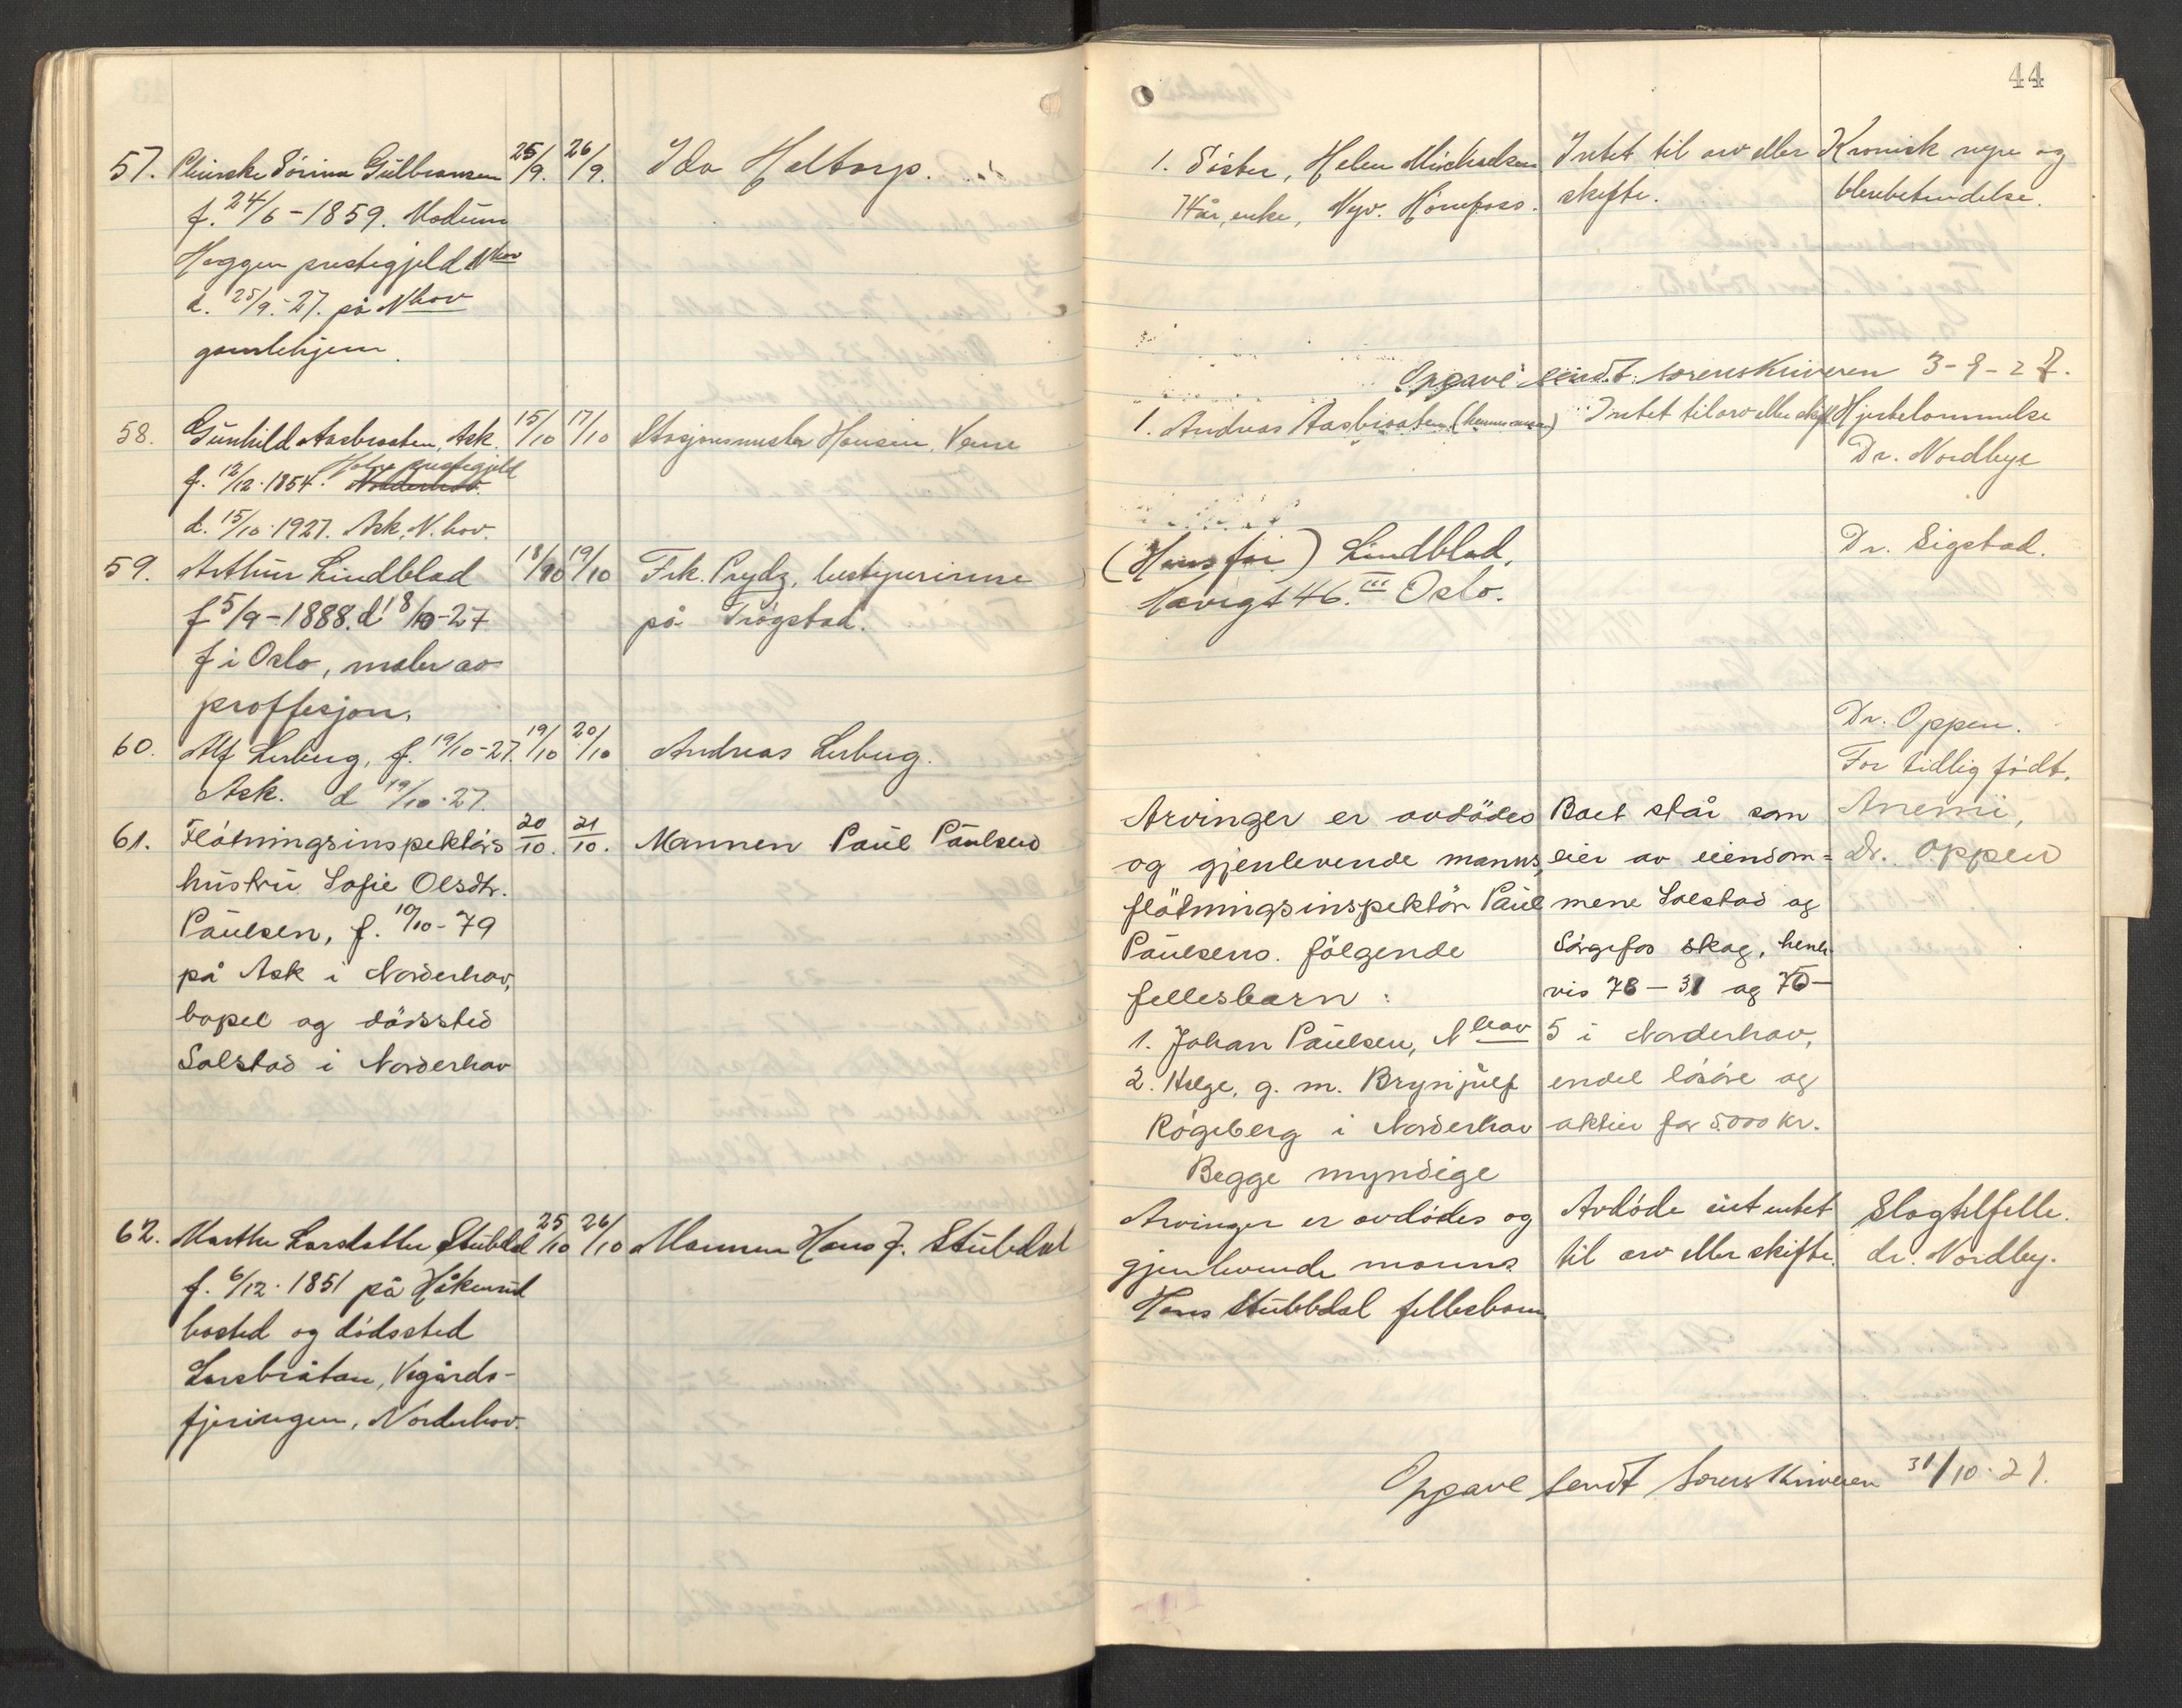 44
57. Pleierske Sörine Gulbransen 25/9. 26/9. Ida Holtorp.
f. 24/6-1859. Modum
Heggen prestegjeld Nhov
d. 25/9.-27. på Nhov
gamlehjem.
1. Söster, Helen Michaelsen Intet til arv eller Kronisk nyre og
74 år, enke, Hönefoss. skifte. blerebetendelse.
Opgave sendt sorenskriveren 3-9-27.
58. Gunhild Aasbraaten, Ask. 15/10 17/10 Stasjonsmester Hansen, Veme
f. 12/12-1854. Hole prestegjeld
Norderhov.
d. 15/10-1927. Ask, N.hov.
1. Andreas Aasbraaten (hennes mann) Intet til arv eller skifte Hjertelammelse
Dr. Nordbye
59. Arthur Lindblad 18/10 19/10 Frk. Prydz, bestyrerinne
f 5/9-1888. d 18/10-27 på Trögstad.
f i Oslo, maler av
proffesjon.
(Hans far) Lindblad, Dr. Sigstad.
46. III Oslo.
60. Alf Lerberg, f. 19/10-27. 19/10 20/10 Andreas Lerberg.
Ask. d 19/10-27.
Dr. Oppen.
For tidlig födt.
61. Flötningsinspektörs 20/10. 21/10. Mannen Paul Paulsen
hustru Sofie Olsdtr.
Paulsen, f. 10/10-79
på Ask i Norderhov,
bopel og dödssted
Solstad i Norderhov
Arvinger er avdödes Boet står som Anemi,
og gjenlevende manns, eier av eiendom= Dr. Oppen
flötningsinspektör Paul mene Solstad og
Paulsens. fölgende Sörgefos skog, henh.
fellesbarn: vis 78-31 og 70-
1. Johan Paulsen, Nhov 5 i Norderhov,
2. Helge, g. m. Brynjulf endel lösöre og
Rögeberg i Norderhov aktier for 5.000 kr.
Begge myndige
62. Marthe Larsdatter Stubdal 25/10 26/10 Mannen Hans J. Stubdal
f. 6/12-1851 på Håkerud
bosted og dödssted
Larsbråtan, Vegårds-
fjeringen, Norderhov.
Arvinger er avdödes og Avdöde eiet intet Slagtilfelle.
gjenlevende manns til arv eller skifte. dr. Nordby.
Hans Stubbdal fellesbarn.
Opgave sendt Sorenskriveren 31/10-27.